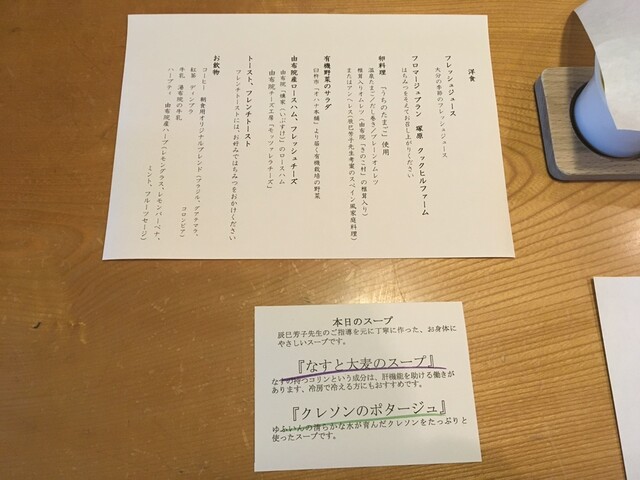 洋食
フレッシュジュース
大分の季節のフレッシュジュース
フロマージュブラン 塚原 クックヒルファーム
はちみつをそえてお召し上がりください
卵料理 「うちのたまご」使用
温泉たまご／だし巻き／プレーンオムレツ
椎茸入りオムレツ（由布院「きのこ村」の椎茸入り）
またはアンヘレス（辰巳芳子先生考案のスペイン風家庭料理）
有機野菜のサラダ
臼杵市「オハナ本舗」より届く有機栽培の野菜
由布院産ロースハム、フレッシュチーズ
由布院「燻家（いぶすけ）」のロースハム
由布院チーズ工房「モッツァレラチーズ」
トースト、フレンチトースト
フレンチトーストには、お好みではちみつをおかけください
お飲物
コーヒー 朝食用オリジナルブレンド（ブラジル、グアテマラ、
コロンビア）
紅茶 ディンブラ
牛乳 湯布院の牛乳
ハーブティ 由布院産ハーブ（レモングラス、レモンバーベナ、
ミント、フルーツセージ）
本日のスープ
辰巳芳子先生のご指導を元に丁寧に作った、お身体に
やさしいスープです。
『なすと大麦のスープ』
なすの持つコリンという成分は、肝機能を助ける働きが
あります、冷房で冷える方にもおすすめです。
『クレソンのポタージュ』
ゆふいんの清らかな水が育んだクレソンをたっぷりと
使ったスープです。